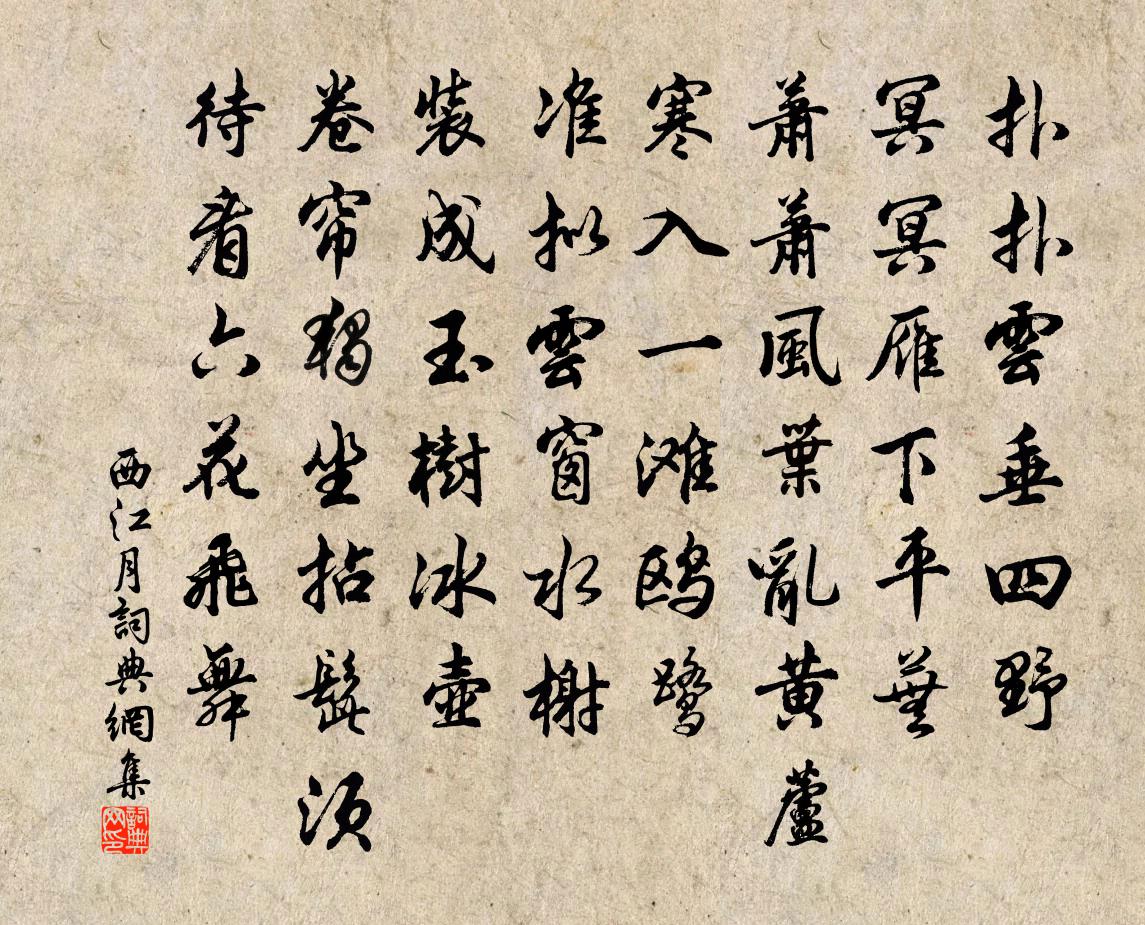 扑扑雲垂四野
冥冥雁下平蕪
蕭蕭風葉亂黄蘆
寒入一滩鸥鹭
准拟雲窗水榭
装成玉樹冰壺
卷帘獨坐拈髭须
待看六花飛舞
西江月詞典網集
詞典网印